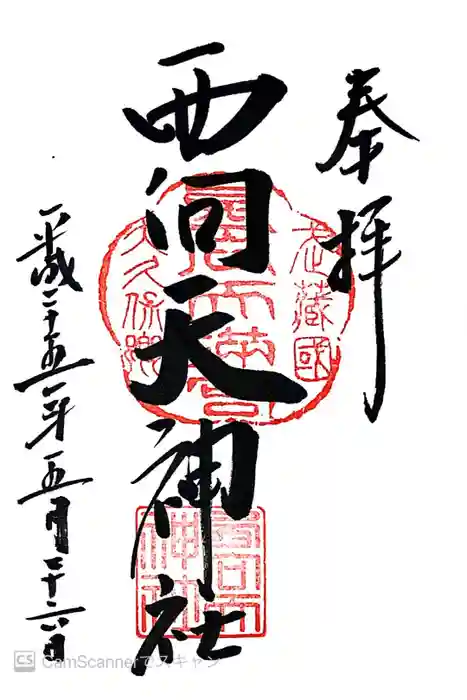 奉拝
西向天神社
武蔵國
大久保郷
平成二十五年五月二十六日
CS CamScannerでスキャン